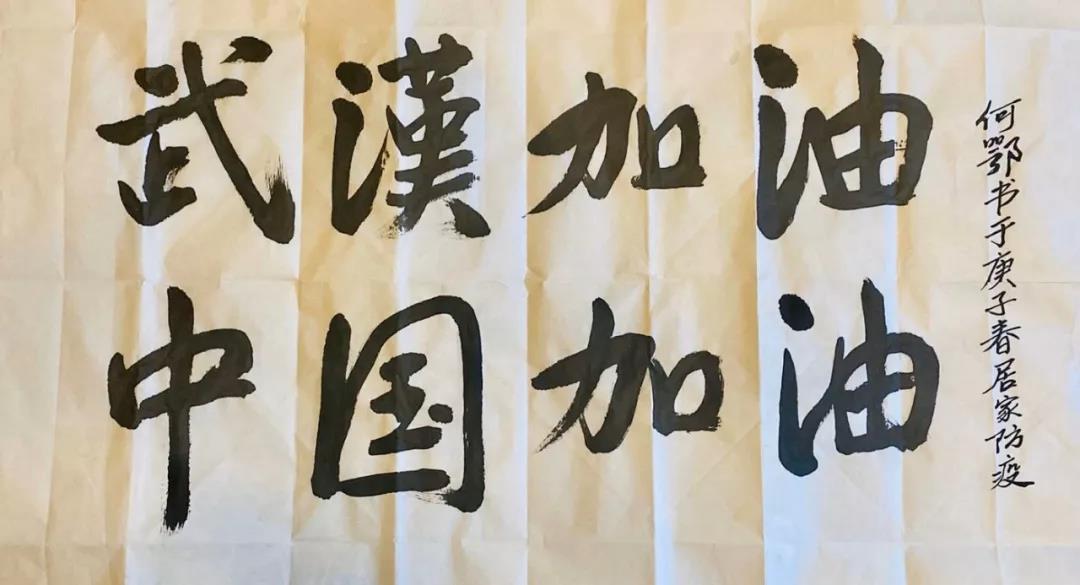 武漢加油
中国加油
何鄂书于庚子春居家防疫